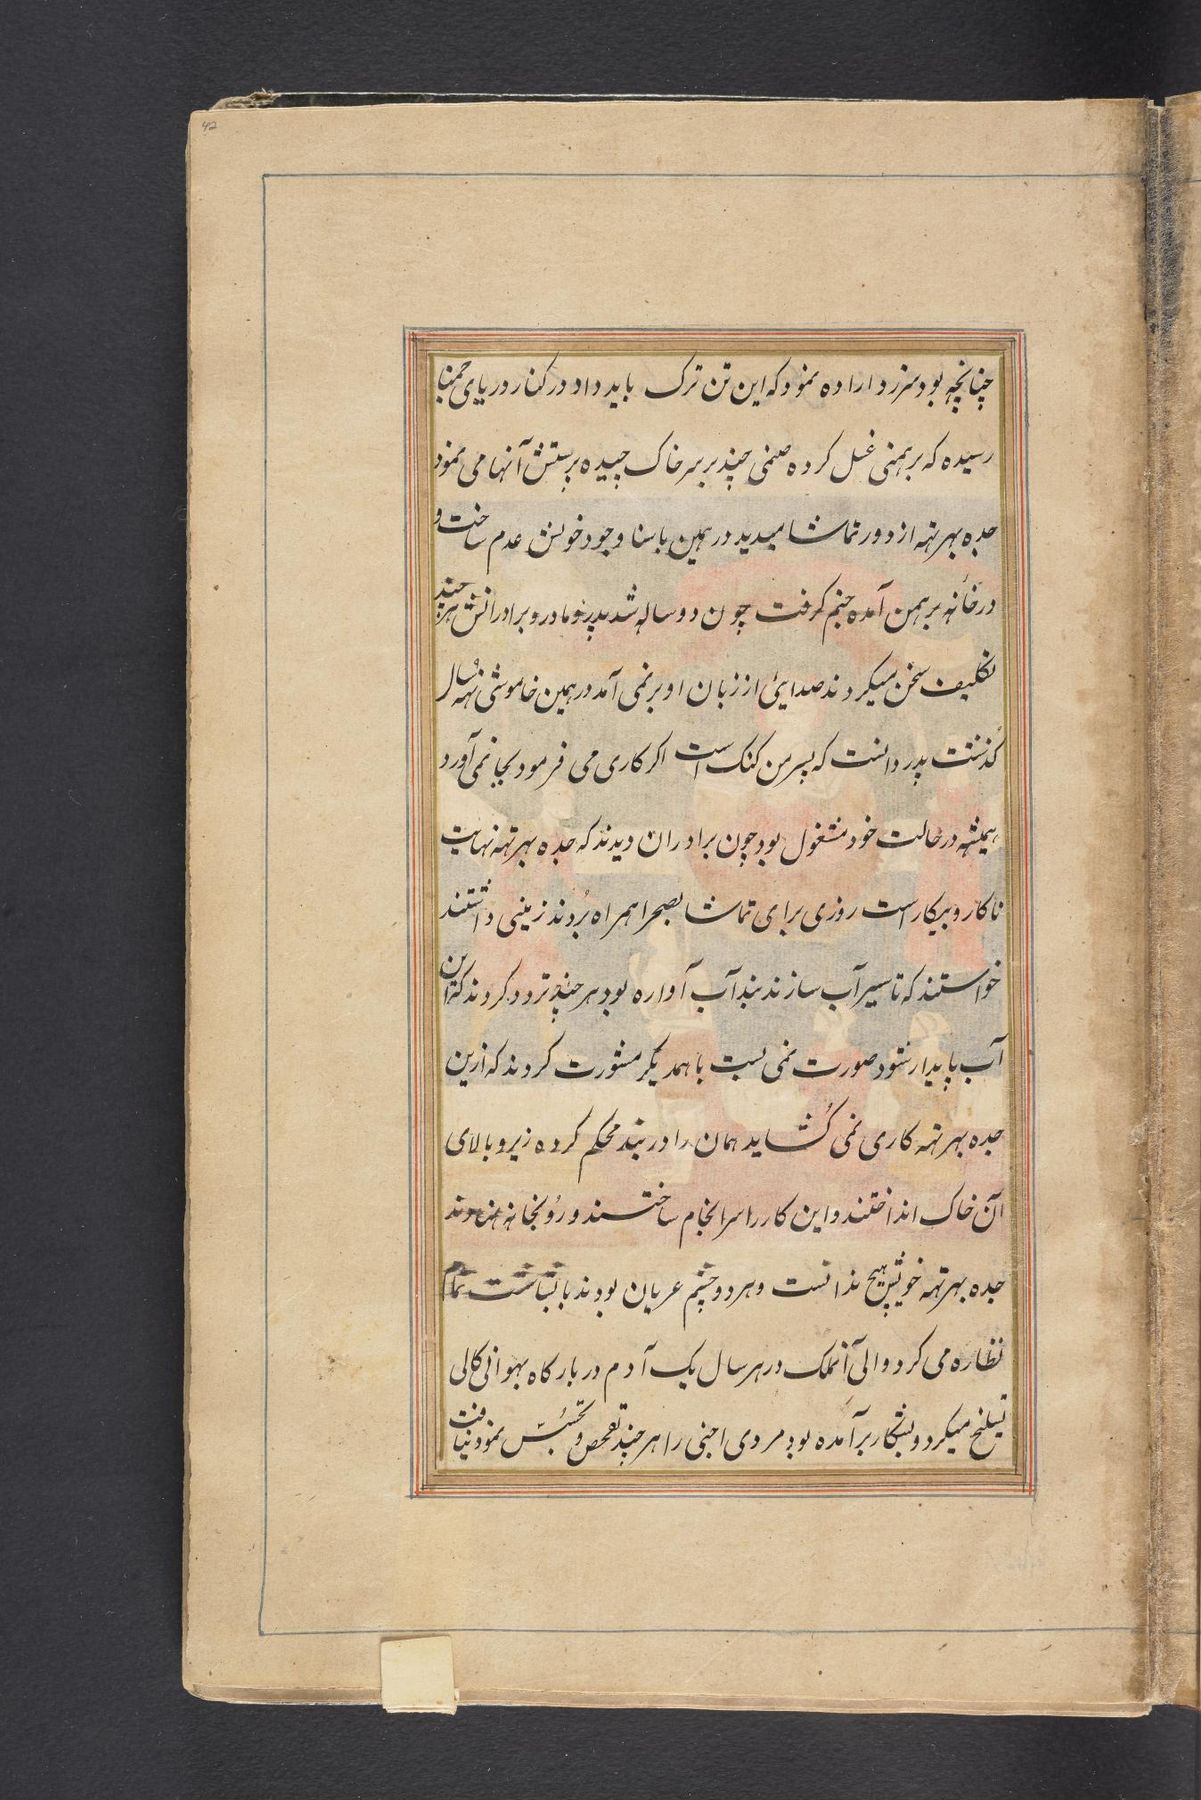 42
چنانچه بود سرزد اراده نمود که این تن ترک باید داد در کنار دریای جمنا
رسیده که برهمنی غسل کرده صنمی چند بر سر خاک چیده پرستش آنها می نمود
جده بهرتهه از دور تماشا میدید در همین باسنا وجود خویش عدم ساخت و
در خانه برهمن آمده جنم گرفت چون دو ساله شد پدر و مادر و برادرانش هر چند
تکلیف سخن میکردند صدایی از زبان او بر نمی آمد در همین خاموشی نهه سال
گذشت پدر دانست که پسر من کنک است اکر کاری می فرمود بجا نمی آورد
همیشه در حالت خود مشغول بود چون برادران دیدند که جده بهرتهه نهایت
ناکار و بیکار است روزی برای تماشا بصحرا همراه بردند زمینی داشتند
خواستند که تا سیر آب سازند بند آب آواره بود هر چند تردد کردند که این
آب پایدار شود صورت نمی بست با همدیکر مشورت کردند که ازین
جده بهرتهه کاری نمی کشاید همان را در بند محکم کرده زیر و بالای
آن خاک انداختند و این کار را سرانجام ساختند و رو بخانه نهادند
جده بهرتهه خویش هیچ ندانست و هر دو چشم عریان بودند تمام
نظاره می کرد والی آنملک در هر سال یک آدم در بارکاه بهوانی کالی
میکرد و بشکار بر آمده بود مردی اجنبی را هر چند تفحص و تجسس نمود نیافت